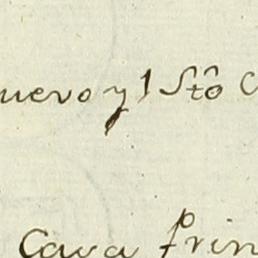 uevo y 1 Stô C
Cava Prin